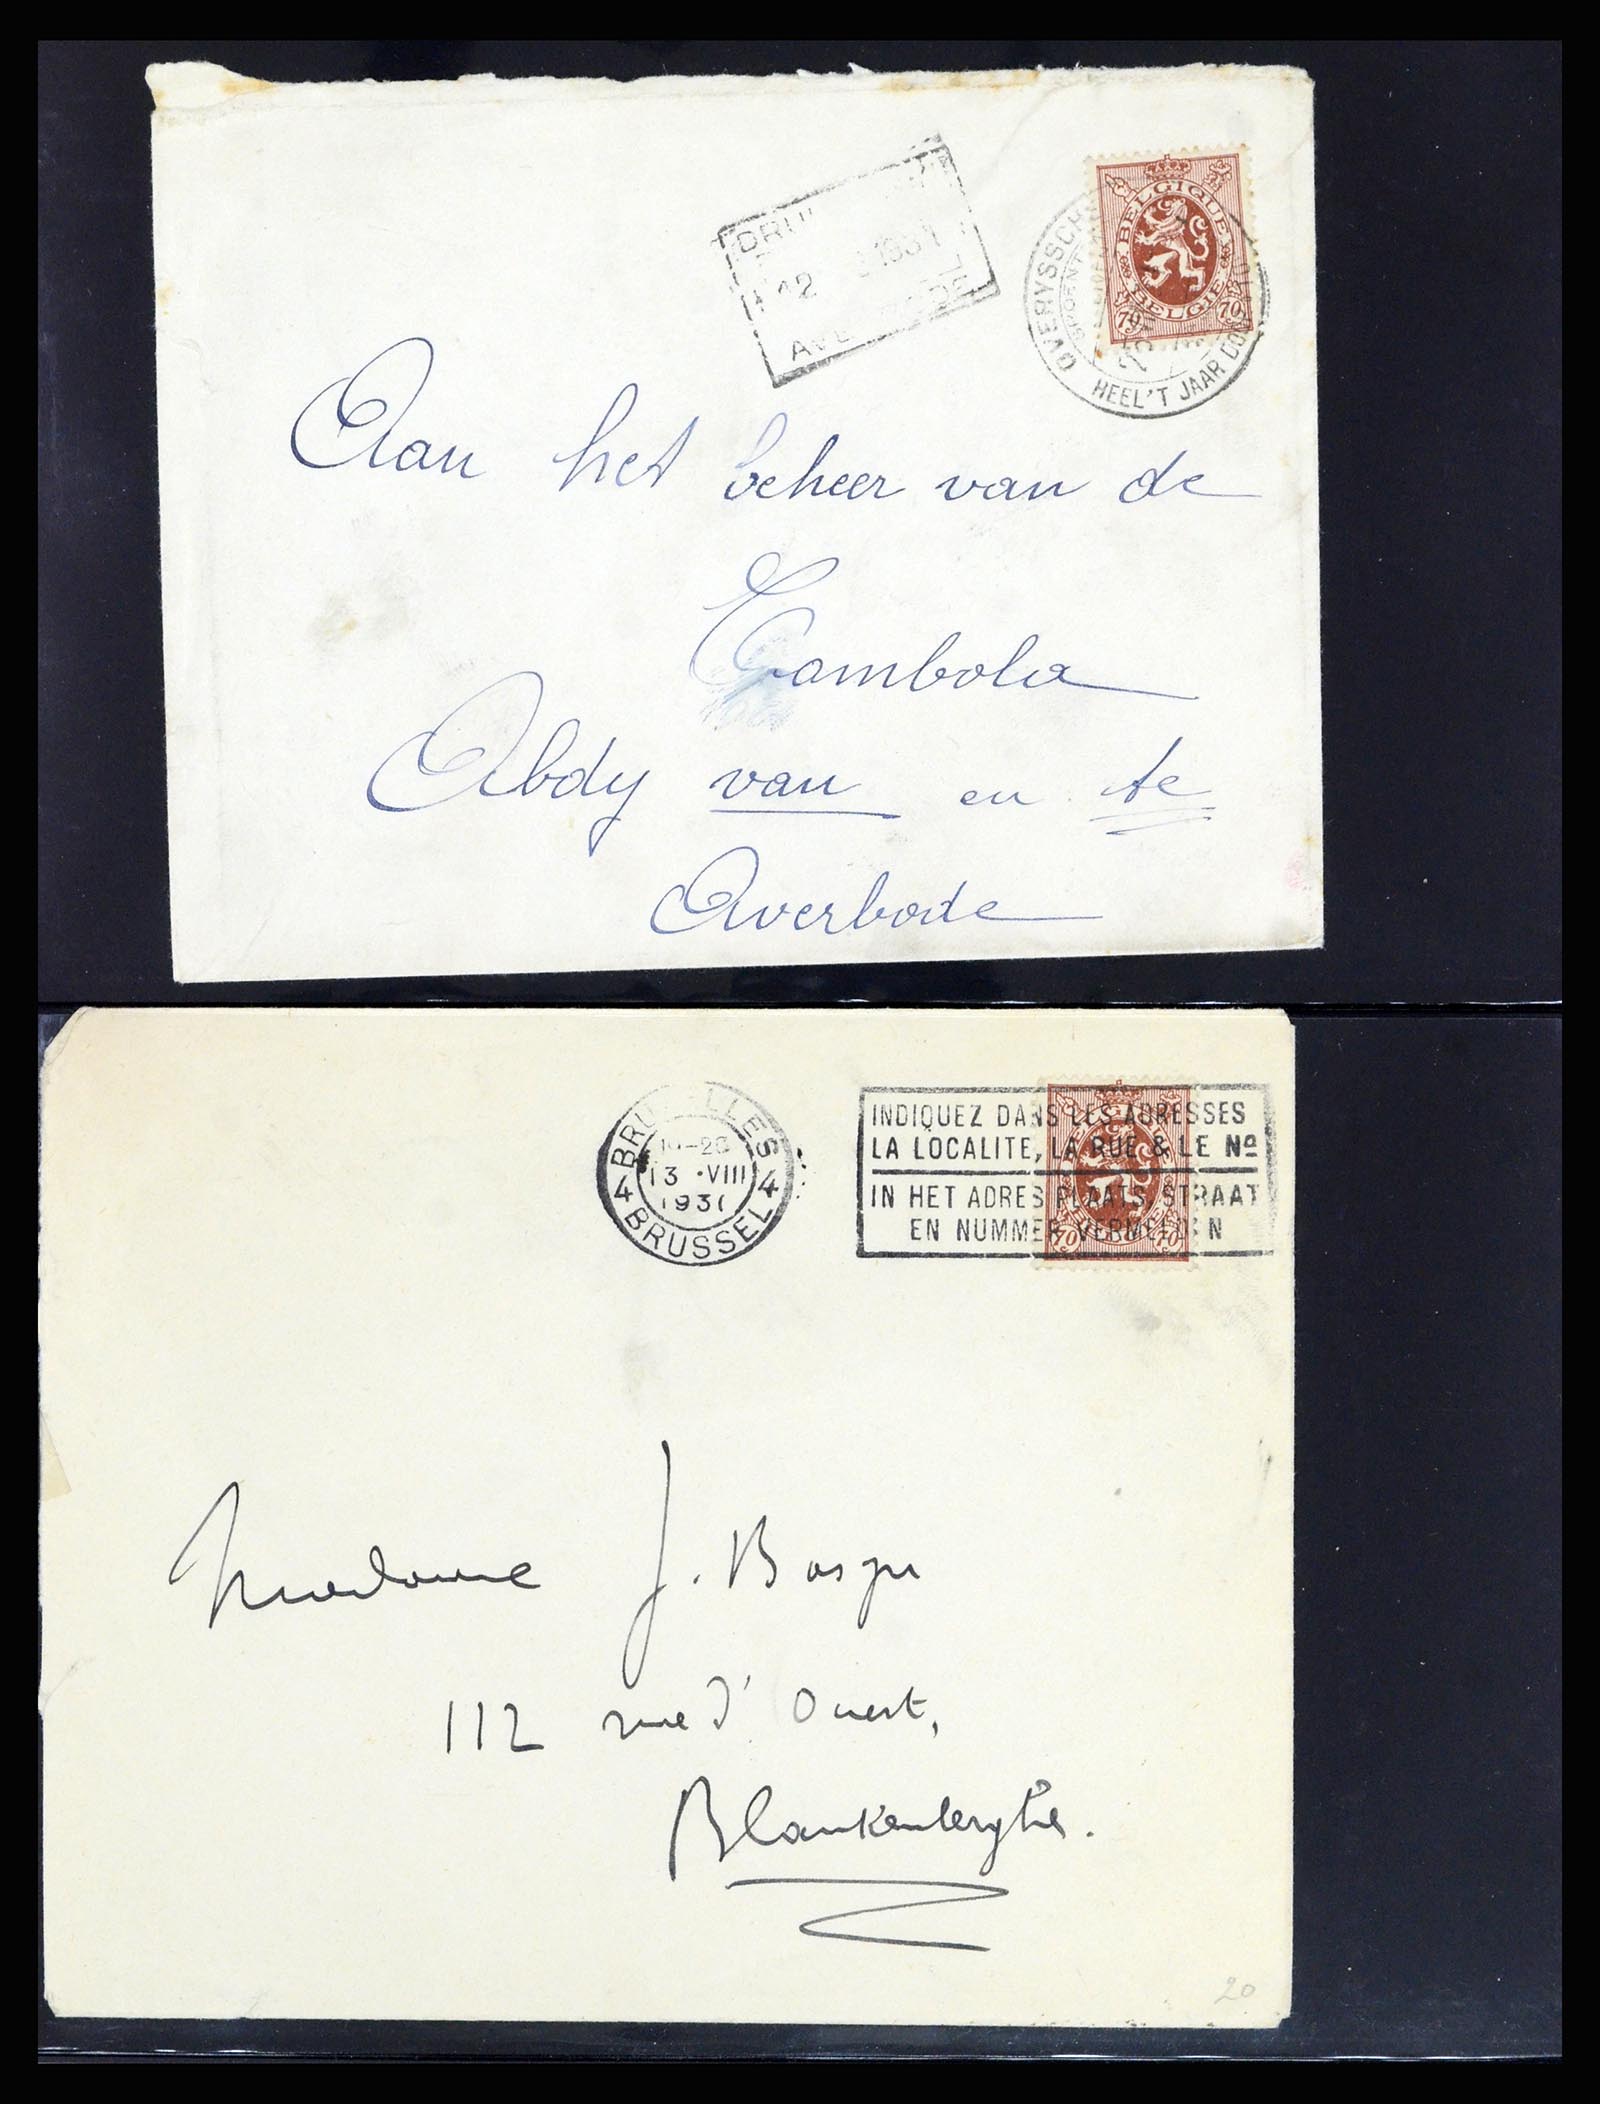 1931
12
BELGIQUE
BELGIE
70 70
OVERYSSCH
HEEL'T JAAR DOOR
Aan het beheer van de
Tombola
Abdy van en te
Averbode
BRUXELLES
13 ·VIII
1931
4 4
BRUSSEL
INDIQUEZ DANS LES ADRESSES
LA LOCALITE, LA RUE & LE No
IN HET ADRES PLAATS, STRAAT
EN NUMMER VERMELDEN
70 70
Madame J.
112 rue d'Ouest,
Blankenberghe.
20